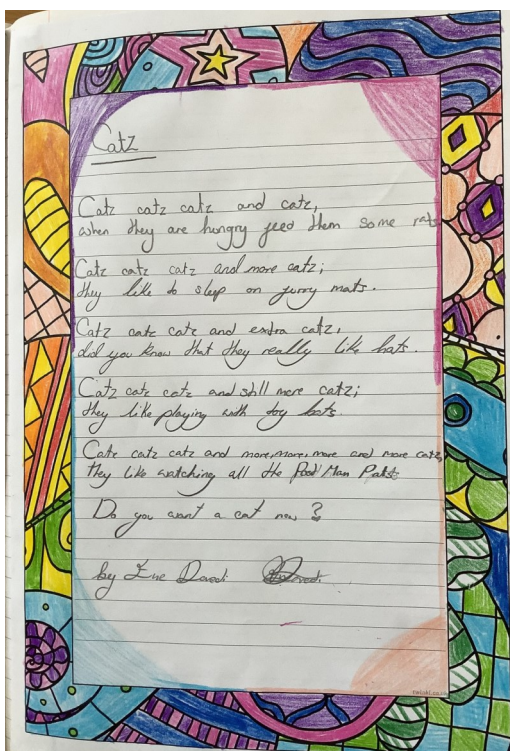 Catz
Catz catz catz and catz,
when they are hungry feed them some rats
Catz catz catz and more catz;
they like to sleep on furry mats.
Catz catz catz and extra catz,
did you know that they really like hats.
Catz catz catz and still more catz;
they like playing with toy bats.
Catz catz catz and more, more, more and more catz,
they like watching all the Man
Do you want a cat now?
by